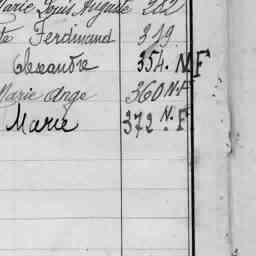 Marie Louis Auguste 382
te Ferdinand 319
Alexandre 354. N.F
Marie Ange 360 N.F
Marie 372 N. F